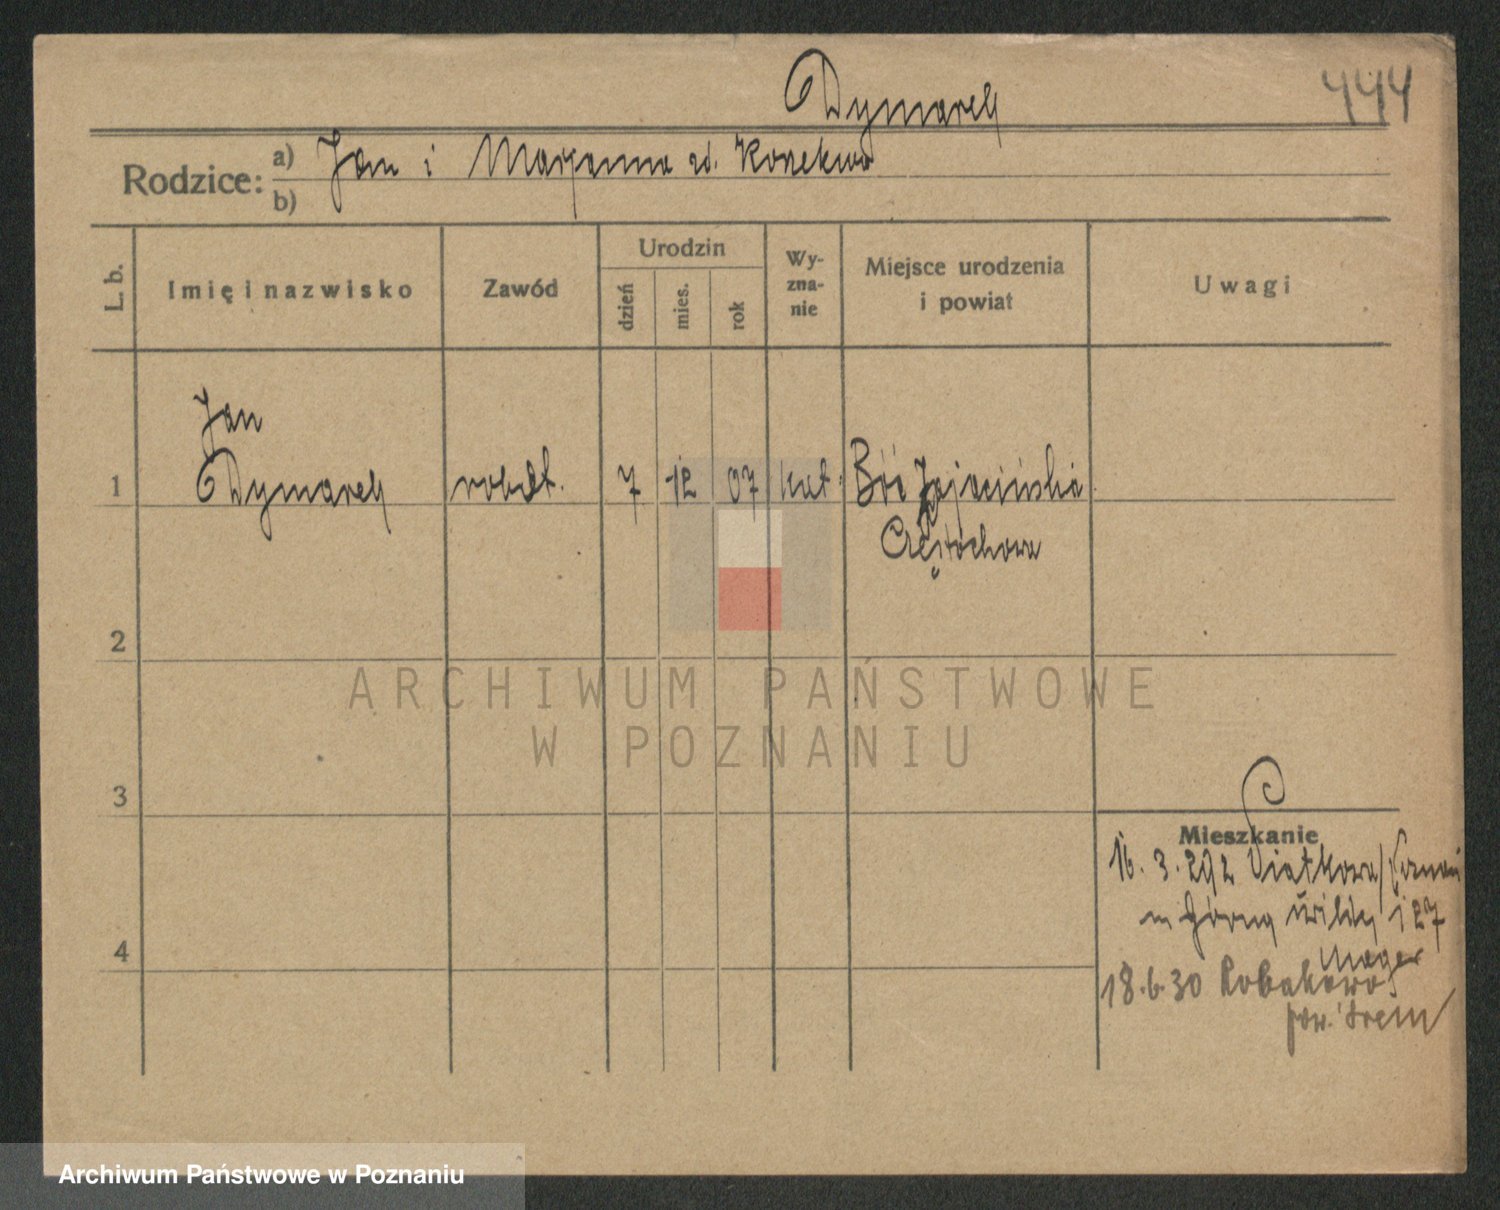 Dymarek
444
Rodzice: a) Jan i Maryanna zd. Konekwa
b)
L. b.
Imię i nazwisko
Zawód
Urodzin
dzień
mies.
rok
Wy-
zna-
nie
Miejsce urodzenia
i powiat
Uwagi
Jan
1 Dymarek robot. 7 12 07 kat. Bór Zajaciński
Częstochowa
2
3
4
Mieszkanie
16. 3. 292 Piątkowa/Poznań
m Górny Wildy 127
Mager
18.6.30 Robakowo
pow. Srem
ARCHIWUM PAŃSTWOWE
W POZNANIU
Archiwum Państwowe w Poznaniu